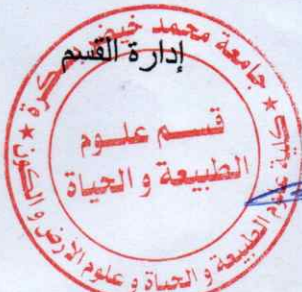 إدارة القسم
جامعة محمد خيضر بسكرة
قسم علوم
الطبيعة و الحياة
الطبيعة و الحياة و علوم الأرض و الكون